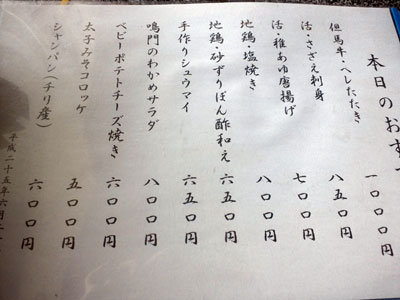 本日のおす
但馬牛・ヘレたたき 一〇〇〇円
活・さざえ刺身 八五〇円
活・稚あゆ唐揚げ 七〇〇円
地鶏・塩焼き 八〇〇円
地鶏・砂ずりぽん酢和え 六五〇円
手作りシュウマイ 六五〇円
鳴門のわかめサラダ 八〇〇円
ベビーポテトチーズ焼き 六〇〇円
太子みそコロッケ 五〇〇円
シャンパン(チリ産) 六〇〇円
平成二十五年六月